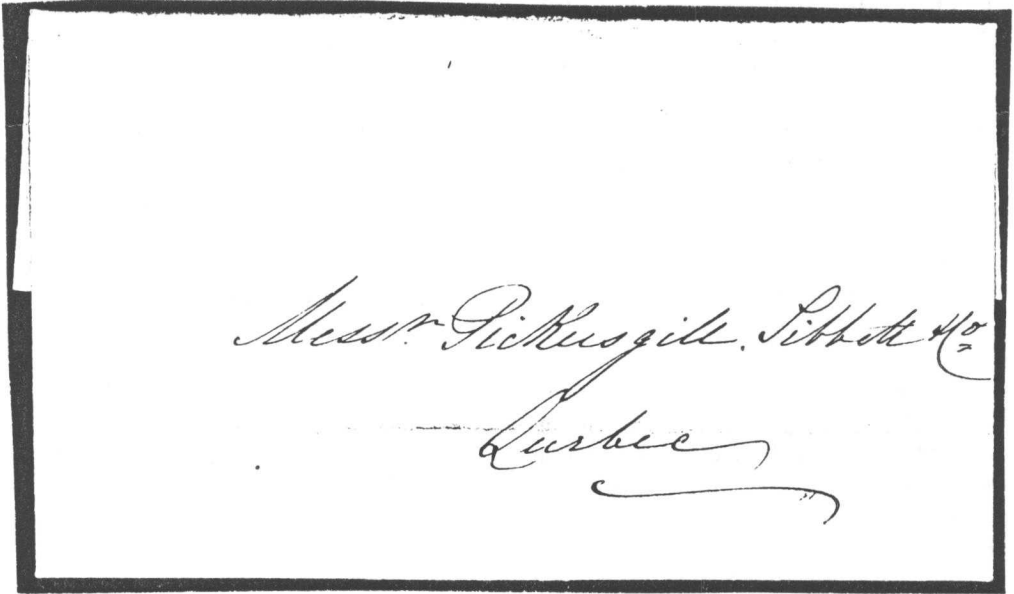 Messrs. Pickersgill. Tibbett & Co
Quebec